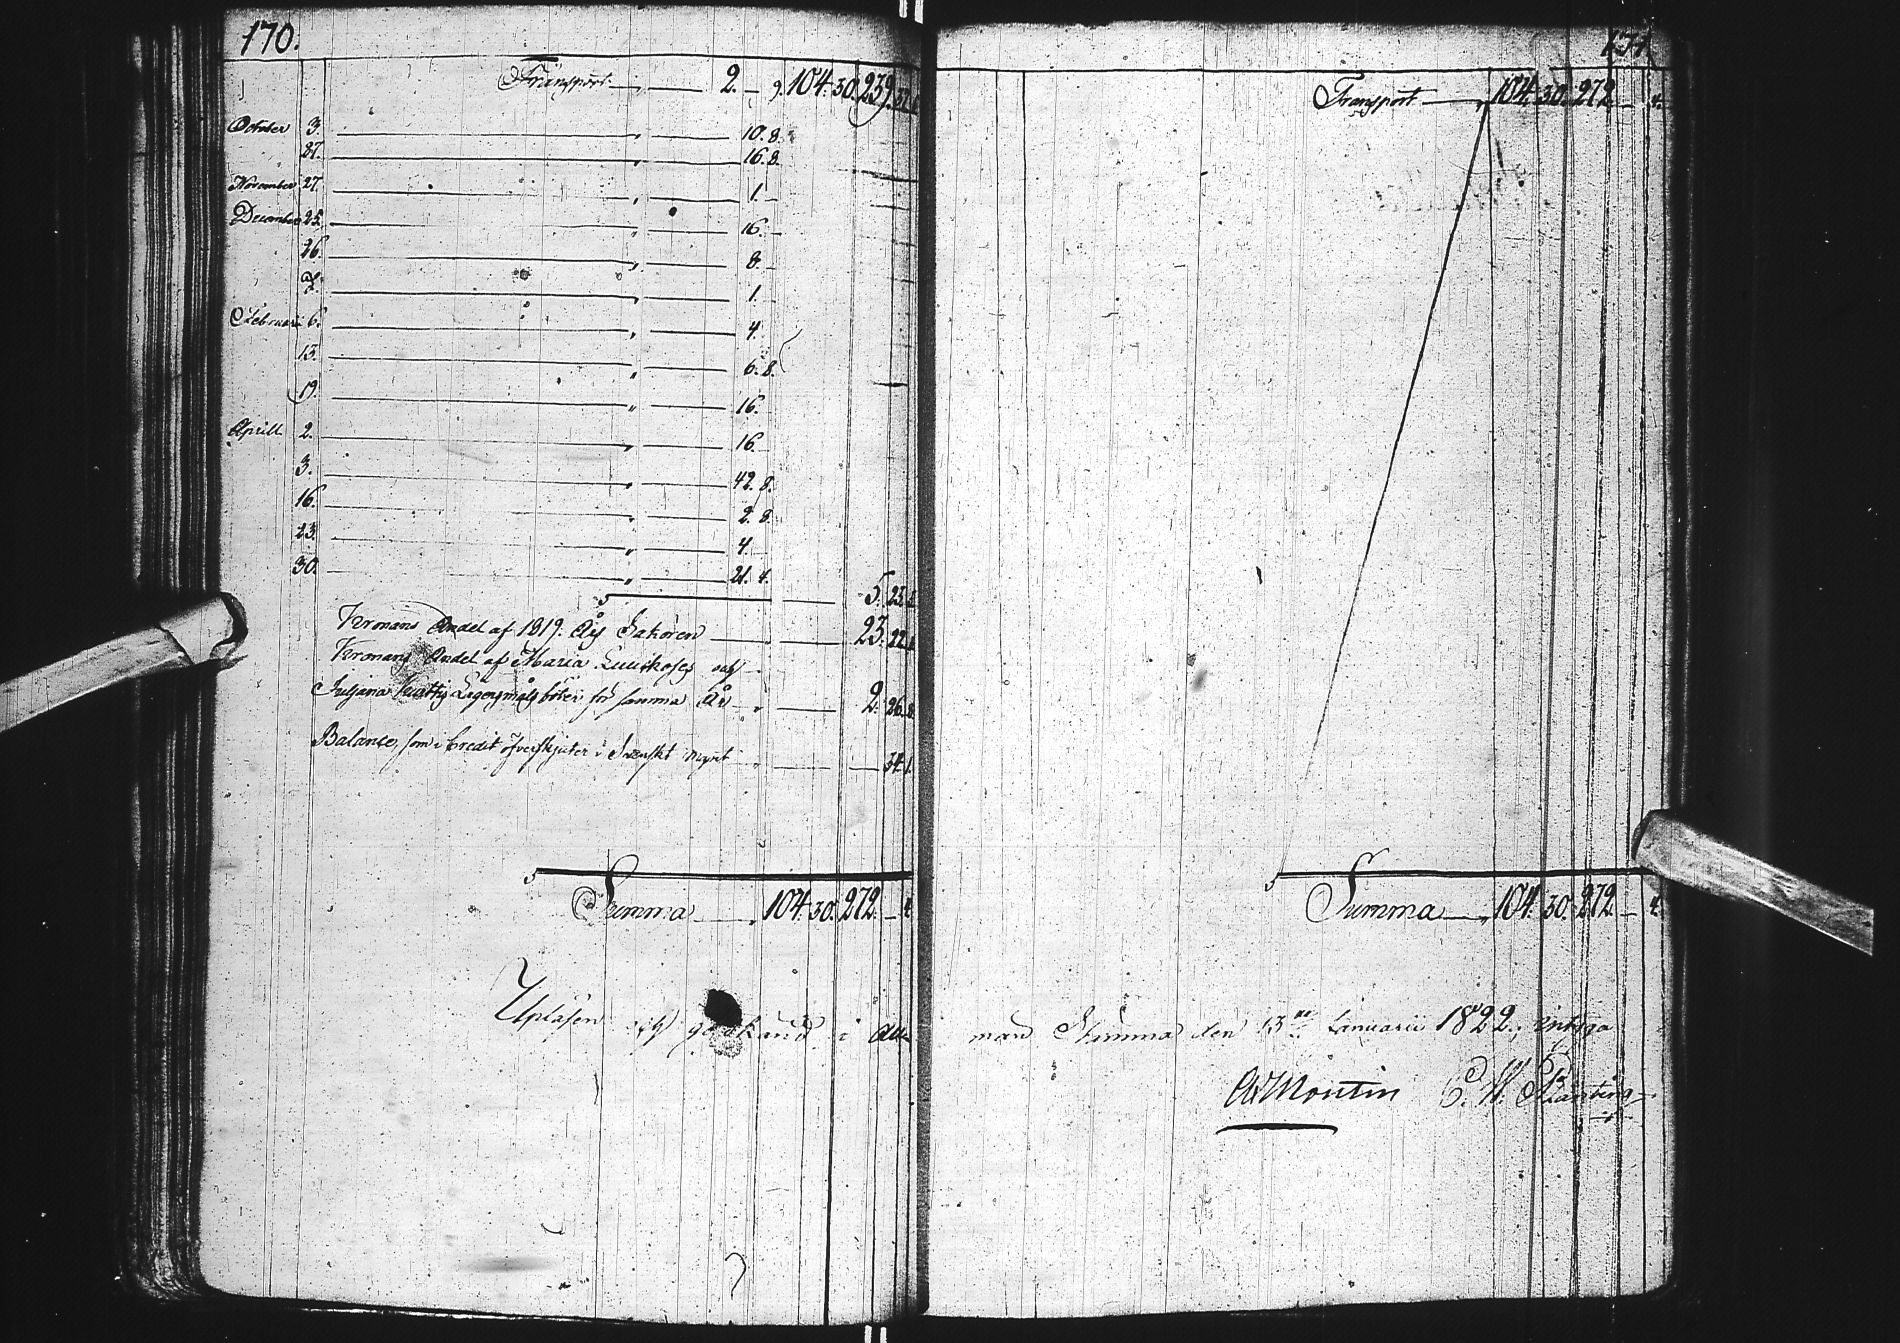 170.
Transport 2. — 9. 104. 30. 239.
October 3. 10. 8.
27. 16. 8.
November 27. 1. —
December 25. 16. —
26. 8. —
1. —
Februari 6. 4.
13. 6. 8.
19. 16. —
Aprill 2. 16. —
3. 42. 8.
16. 2. 8.
23. 4. —
30. 21. 4.
5. 23.
Kronans Andel af 1819. Års Sakören 23. 22.
Kronans Andel af Maria
Juljana Lägersmåls böter för samma År 2. 26. 8.
Balance, som i Credit öfverskjuter i Svenskt mynt 34. 1.
Summa 104. 30. 272. — 4.
Upläsen och godkänd i All-
171.
Transport 104. 30. 272. — 4.
Summa 104. 30. 272. — 4.
män Stämma den 13de Januarii 1822, intyga
Montin C. W.